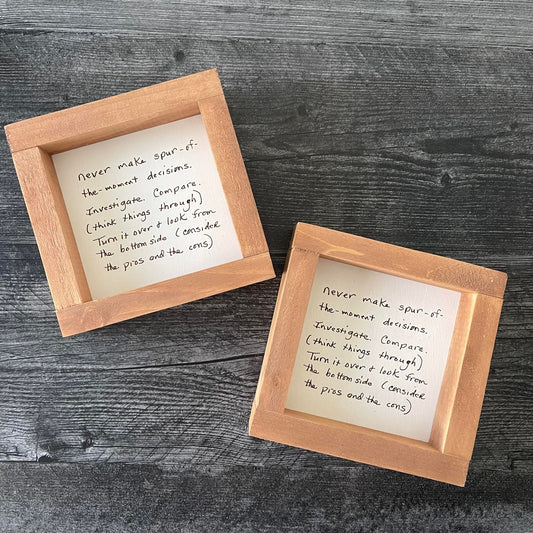 never make spur-of-
the-moment decisions.
Investigate. Compare.
(think things through)
Turn it over & look from
the bottom side (consider
the pros and the cons)
never make spur-of-
the-moment decisions.
Investigate. Compare.
(think things through)
Turn it over & look from
the bottom side (consider
the pros and the cons)